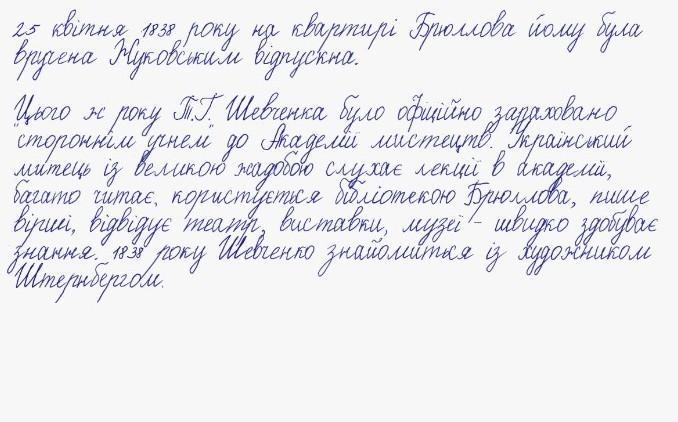 25 квітня 1838 року на квартирі Брюллова йому була
вручена Жуковським відпускна.
Цього ж року Т.Г. Шевченка було офіційно зараховано
"стороннім учнем" до Академії мистецтв. Український
митець із великою жадобою слухає лекції в академії,
багато читає, користується бібліотекою Брюллова, пише
вірші, відвідує театр, виставки, музеї - швидко здобуває
знання. 1838 року Шевченко знайомиться із художником
Штернбергом.